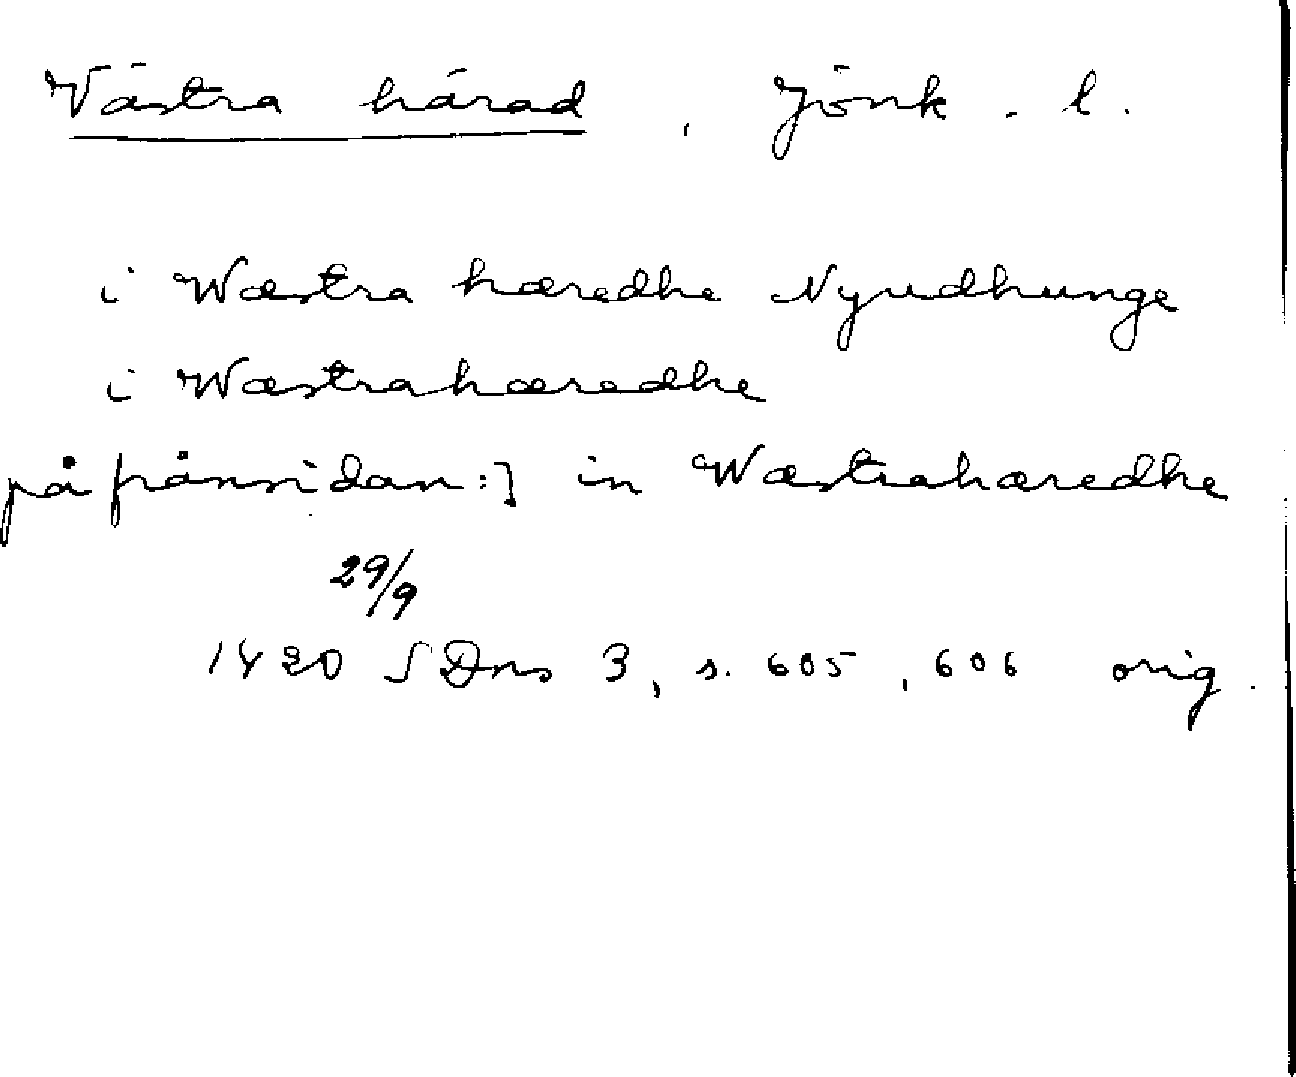 Västra härad, Jönk. l.
i Wæstra hæredhe Nyudhunge
i Wæstrahæredhe
på frånsidan:] in Wæstrahæredhe
29/9
1420 SDns 3, s. 605, 606 orig.